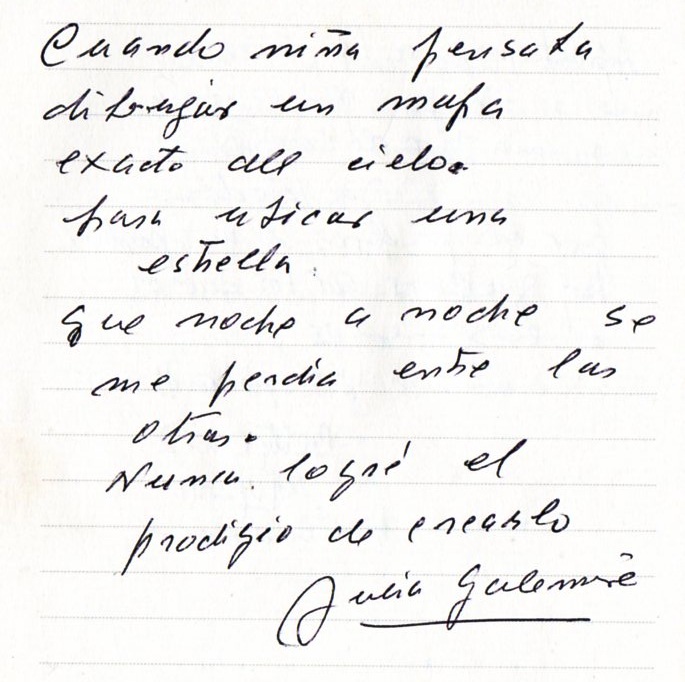 Cuando niña pensaba
dibujar un mapa
exacto del cielo.
para ubicar una
estrella.
que noche a noche se
me perdía entre las
otras.
Nunca logré el
prodigio de crearlo
Julia Galemire